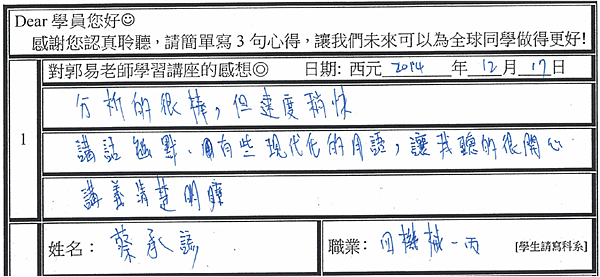 Dear 學員您好☺
感謝您認真聆聽，請簡單寫3句心得，讓我們未來可以為全球同學做得更好!
對郭易老師學習講座的感想◎ 日期: 西元 2014 年 12 月 17 日
分析的很棒，但速度稍快
1
講話幽默、用有些現代化的用語，讓我聽的很開心
講義清楚明瞭
姓名： 蔡承 職業： 四機械一丙 [學生請寫科系]